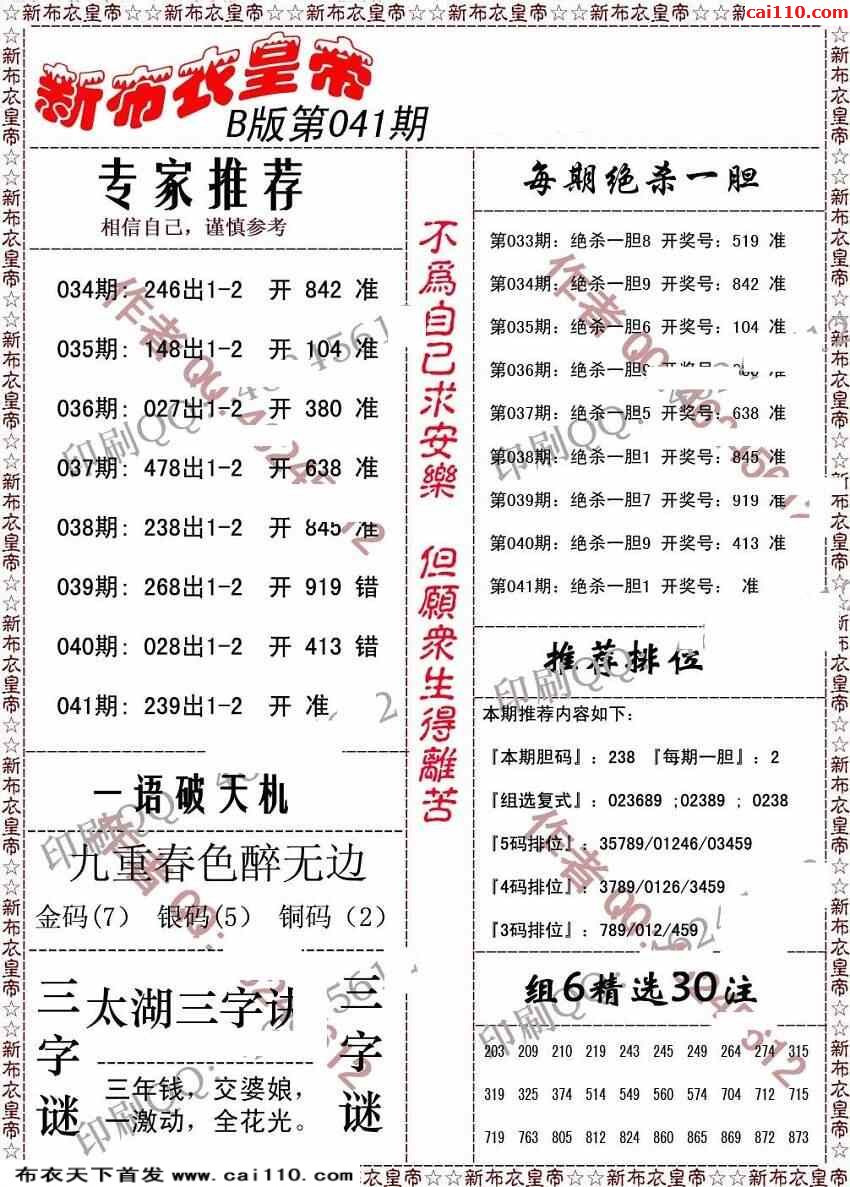 ☆☆新布衣皇帝☆☆新布衣皇帝☆☆新布衣皇帝☆☆新布衣皇帝☆☆新布衣皇帝☆☆新
cai110.com
新布衣皇帝
B版第041期
专家推荐
相信自己，谨慎参考
034期: 246出1-2 开 842 准
035期: 148出1-2 开 104 准
036期: 027出1-2 开 380 准
037期: 478出1-2 开 638 准
038期: 238出1-2 开 845 准
039期: 268出1-2 开 919 错
040期: 028出1-2 开 413 错
041期: 239出1-2 开 准
一语破天机
九重春色醉无边
金码(7) 银码(5) 铜码（2）
三字谜
太湖三字诀
三年钱，交婆娘，
一激动，全花光。
三字谜
不為自己求安樂 但願衆生得離苦
每期绝杀一胆
第033期: 绝杀一胆8 开奖号: 519 准
第034期: 绝杀一胆9 开奖号: 842 准
第035期: 绝杀一胆6 开奖号: 104 准
第036期: 绝杀一胆9 开奖号: 380 准
第037期: 绝杀一胆5 开奖号: 638 准
第038期: 绝杀一胆1 开奖号: 845 准
第039期: 绝杀一胆7 开奖号: 919 准
第040期: 绝杀一胆9 开奖号: 413 准
第041期: 绝杀一胆1 开奖号: 准
推荐排位
本期推荐内容如下:
『本期胆码』: 238 『每期一胆』: 2
『组选复式』: 023689 ;02389 ; 0238
『5码排位』: 35789/01246/03459
『4码排位』: 3789/0126/3459
『3码排位』: 789/012/459
组6精选30注
203 209 210 219 243 245 249 264 274 315
319 325 374 514 549 560 574 704 712 715
719 763 805 812 824 860 865 869 872 873
布衣天下首发 www.cai110.com
衣皇帝☆☆新布衣皇帝☆☆新布衣皇帝☆☆新布衣皇帝☆☆